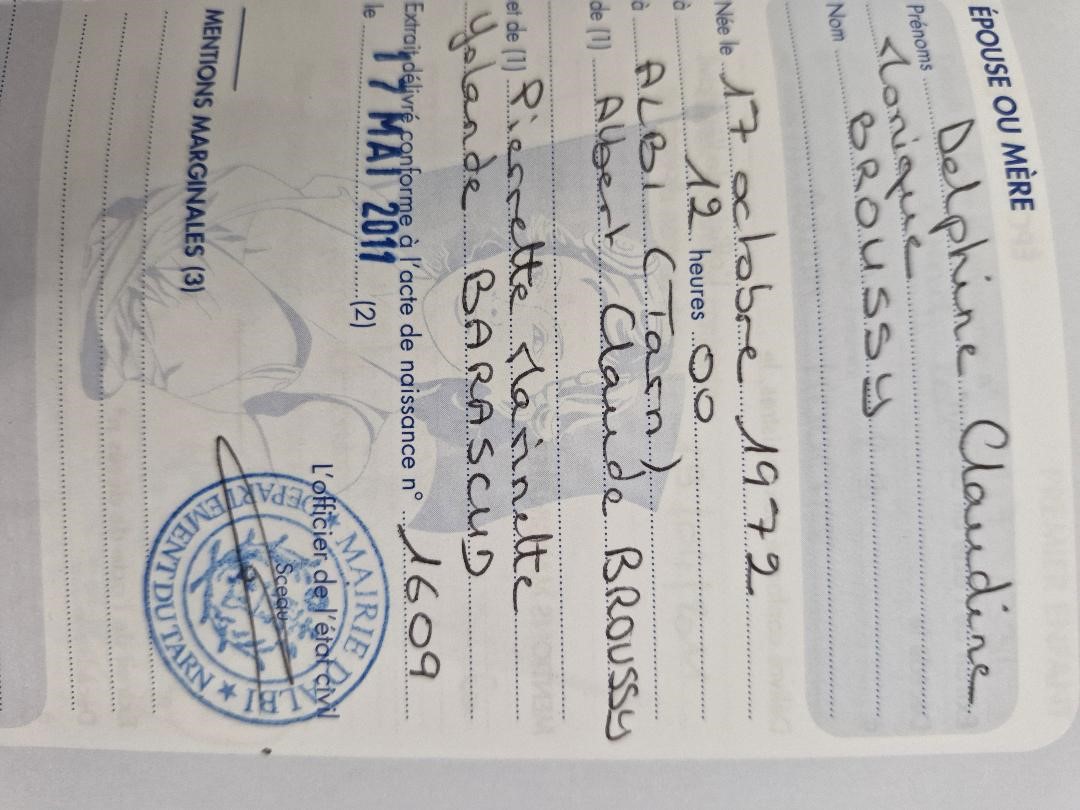 ÉPOUSE OU MÈRE
Delphine Claudine
Prénoms
Monique
Nom BROUSSY
Née le 17 octobre 1972
à 12 heures 00
à ALBI (Tarn)
de (1) Albert Claude BROUSSY
et de (1) Pierrette Marinette
Yolande BARASCUD
Extrait délivré conforme à l'acte de naissance n° 1609
le 17 MAI 2011 (2)
L'officier de l'état civil
Sceau
MAIRIE D'ALBI
★ DEPARTEMENT DU TARN ★
MENTIONS MARGINALES (3)